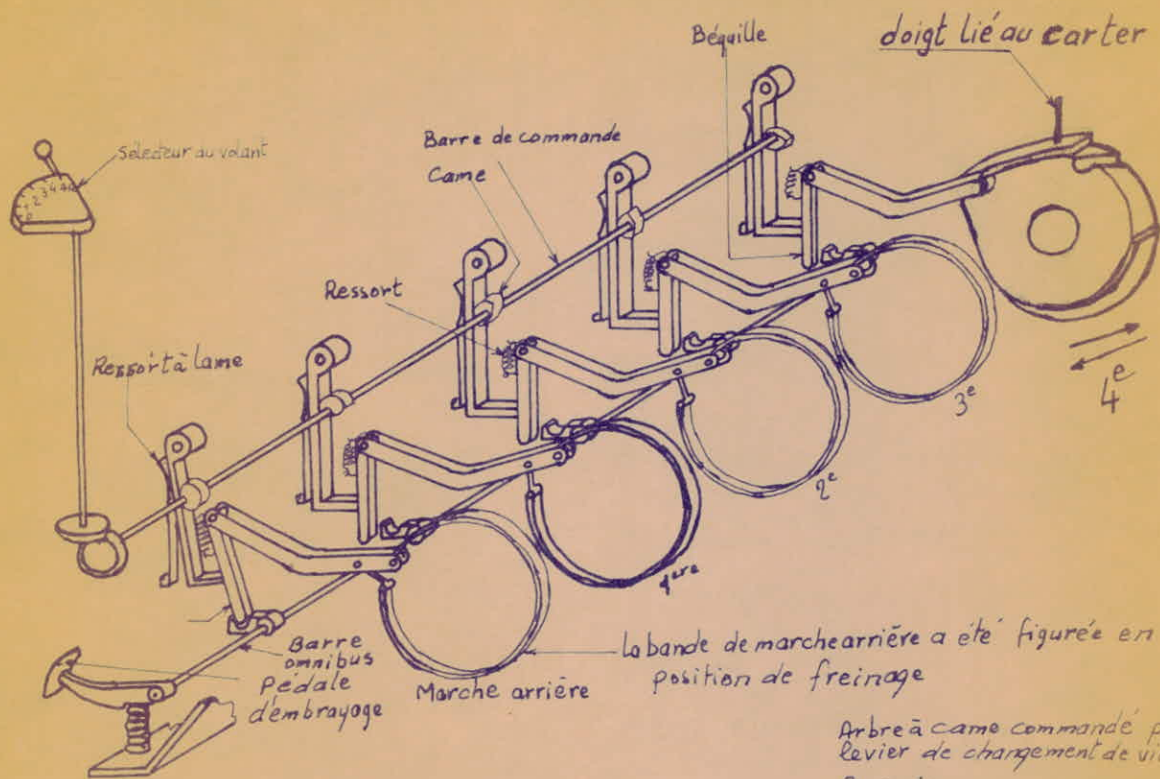 Béquille
doigt lié au carter
Sélecteur au volant
Barre de commande
Came
Ressort
Ressort à lame
4e
3e
2e
1ere
Barre
omnibus
pédale
d'embrayage
Marche arrière
La bande de marche arrière a été figurée en
position de freinage
Arbre à came commandé
levier de changement de